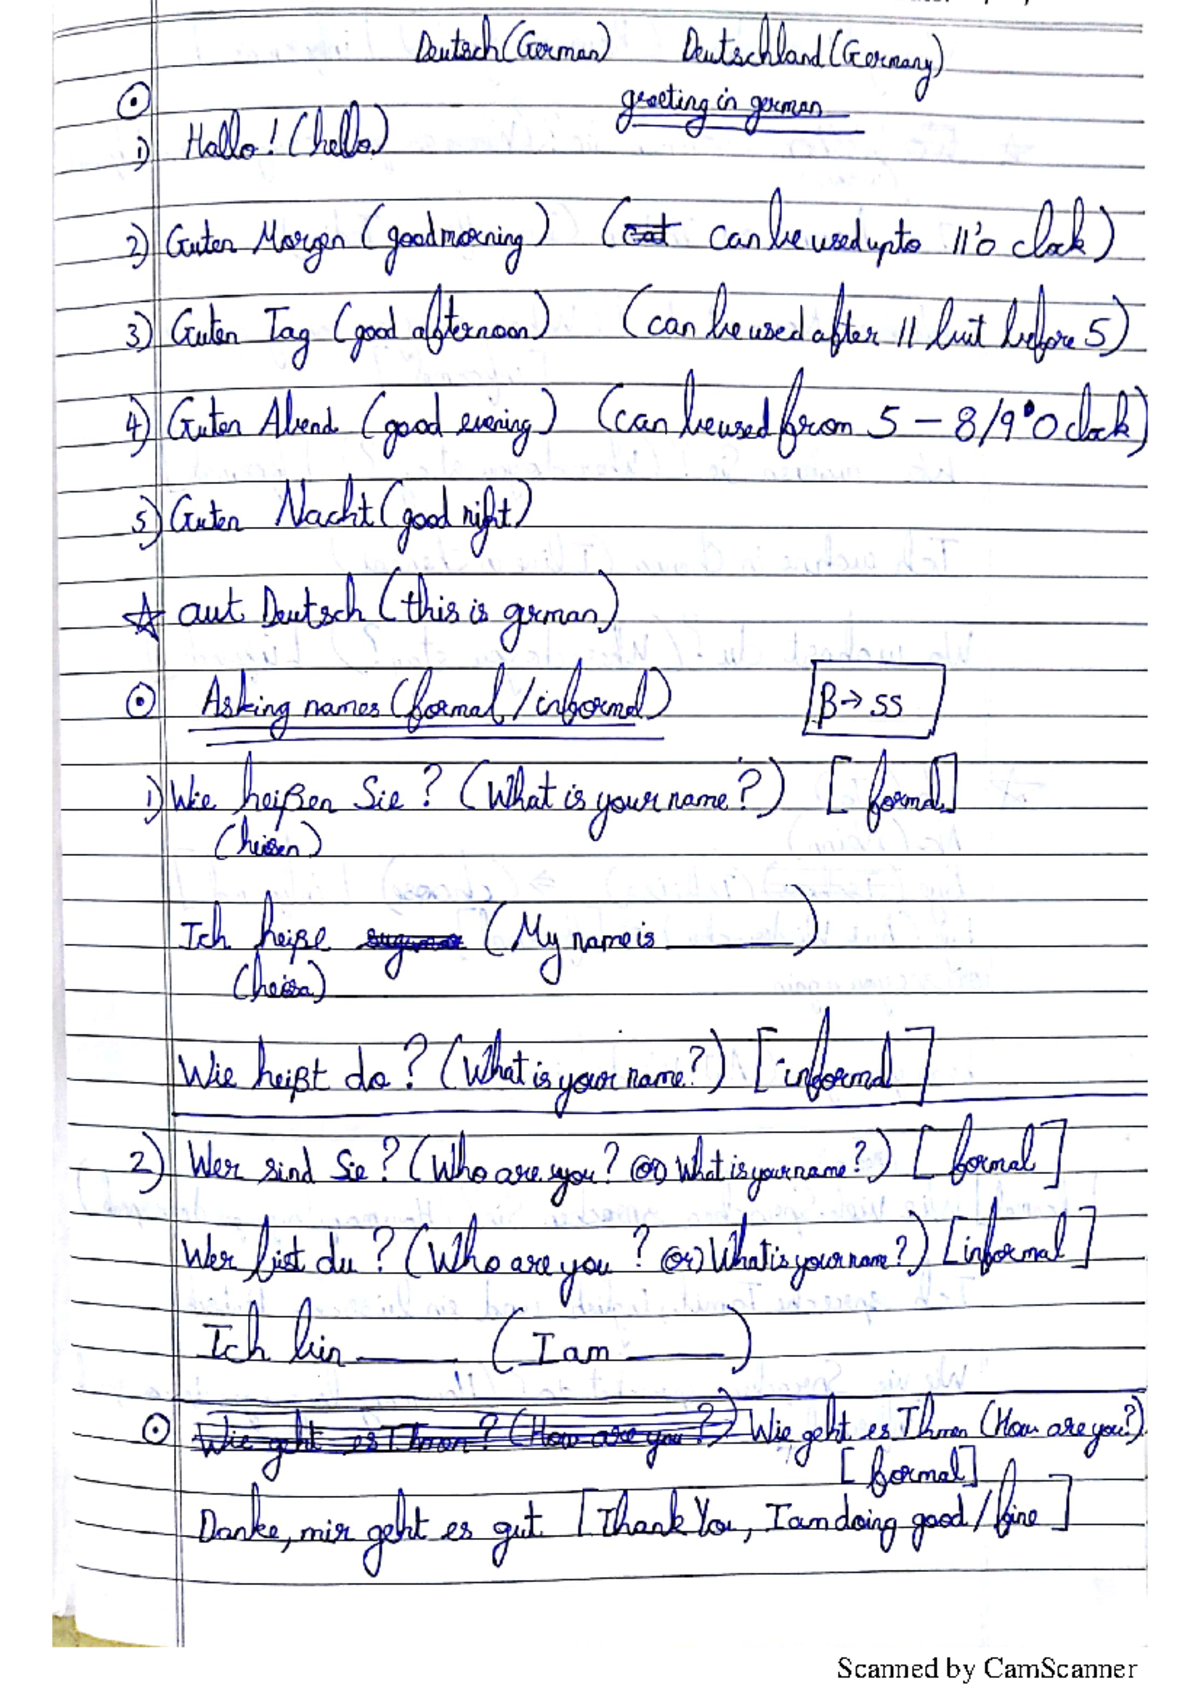 Deutsch (German) Deutschland (Germany)
greeting in german
1) Hallo! (hello)
2) Guten Morgen (goodmorning) (can be used upto 11'o clock)
3) Guten Tag (good afternoon) (can be used after 11 but before 5)
4) Guten Abend (good evening) (can be used from 5 - 8/9'O clock)
5) Guten Nacht (good night)
☆ aut Deutsch (this is german)
Asking names (formal / informal) β→ss
1) Wie heißen Sie? (What is your name?) [formal]
(heisen)
Ich heiße (My name is ______)
(heisa)
Wie heißt do? (What is your name?) [informal]
2) Wer sind Sie? (Who are you? (or) What is your name?) [formal]
Wer bist du? (Who are you? (or) What is your name?) [informal]
Ich bin ______ (I am ______)
Wie geht es Ihnen? (How are you?) Wie geht es Ihnen (How are you?)
[formal]
Danke, mir geht es gut [Thank You, I am doing good / fine]
Scanned by CamScanner